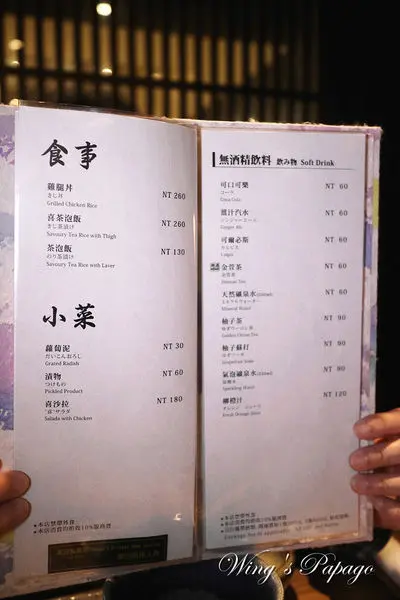 食事
雞腿丼
きじ丼
Grilled Chicken Rice
NT 260
喜茶泡飯
きじ茶漬け
Savoury Tea Rice with Chicken
NT 260
茶泡飯
のり茶漬け
Savoury Tea Rice with Laver
NT 130
小菜
蘿蔔泥
だいこんおろし
Grated Radish
NT 30
漬物
つけもの
Pickled Product
NT 60
喜沙拉
"喜"サラダ
Salada with Chicken
NT 180
●本店禁帶外食
●本店消費均酌收10%服務費
無酒精飲料 飲み物 Soft Drink
可口可樂
コーラ
Coca Cola
NT 60
薑汁汽水
ジンジャーエール
Ginger Ale
NT 60
可爾必斯
カルピス
Calpis
NT 60
金萱茶
金萱茶
NT 60
天然礦泉水
ミネラルウォーター
Mineral Water
NT 60
柚子茶
NT 90
柚子蘇打
NT 90
氣泡礦泉水
炭酸水
Sparkling Water
NT 80
柳橙汁
オレンジ ジュース
Fresh Orange Juice
NT 120
●本店禁帶外食
●本店消費均酌收10%服務費
Wing's Papago